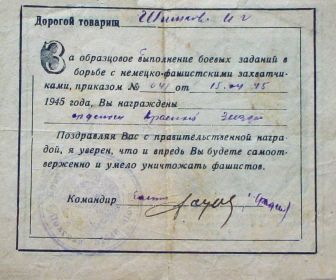 Дорогой товарищ Шишков И г
За образцовое выполнение боевых заданий в
борьбе с немецко-фашистскими захватчи-
ками, приказом № 041 от 15.04.45
1945 года, Вы награждены
орденом Красная Звезда
Поздравляя Вас с правительственной награ-
дой, я уверен, что и впредь Вы будете самоот-
верженно и умело уничтожать фашистов.
Командир